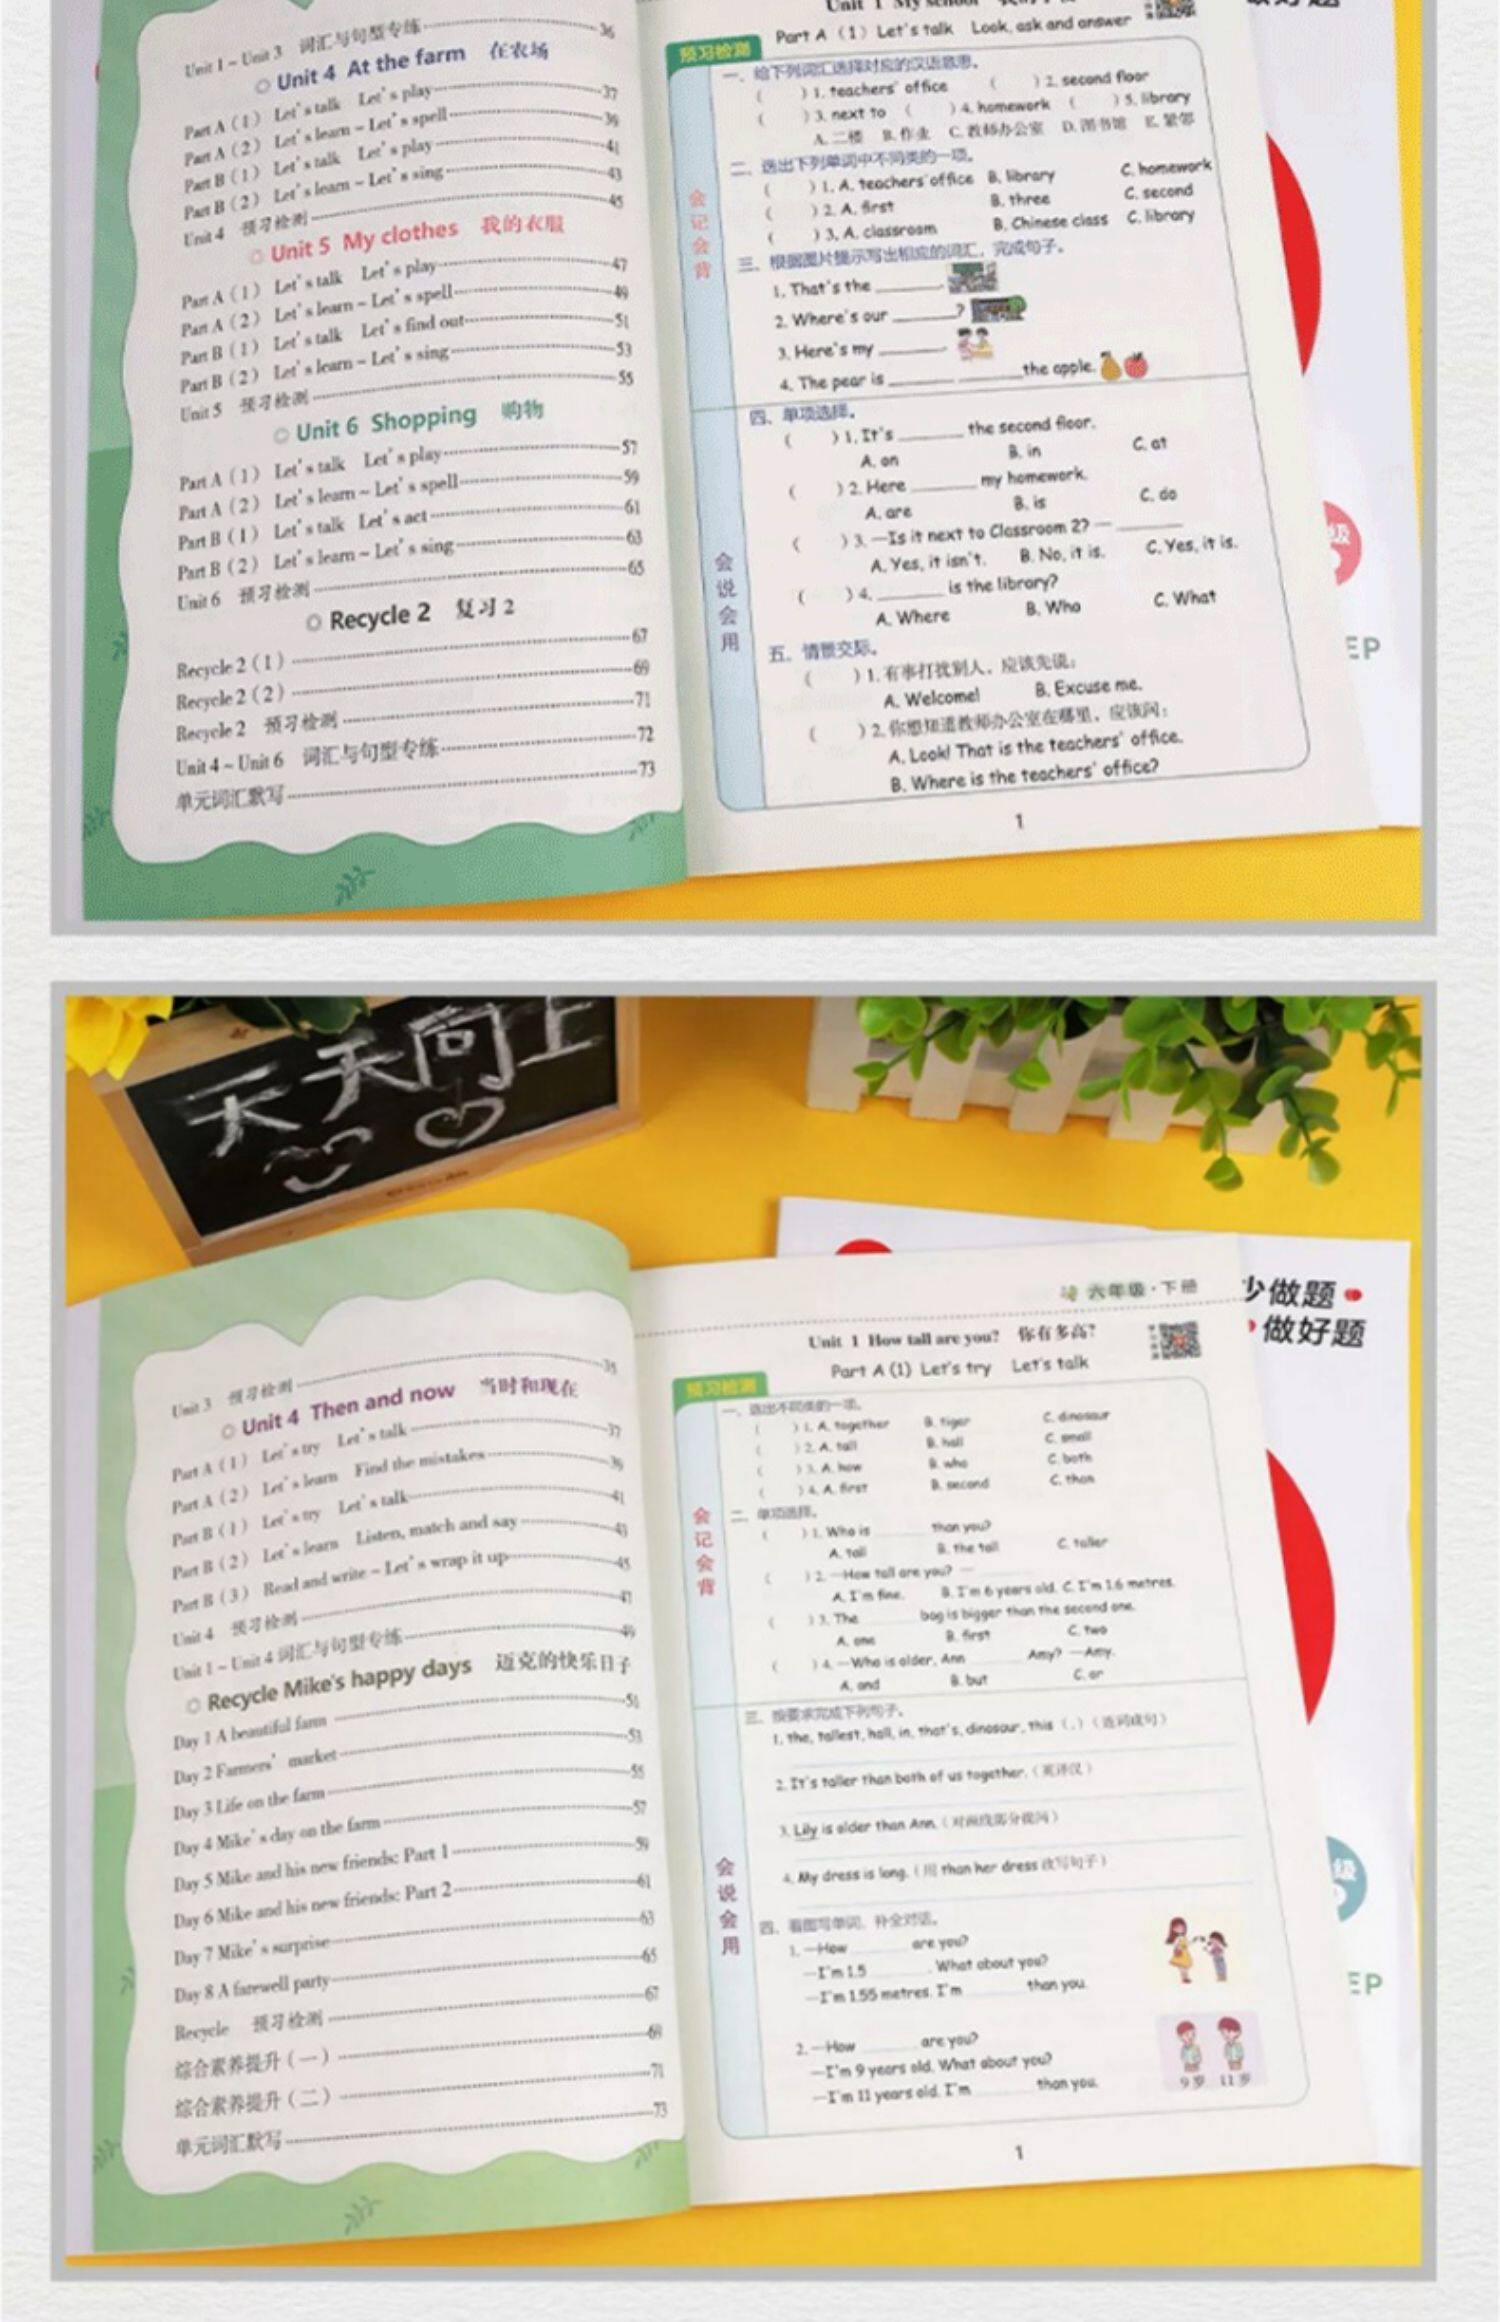 Unit 1~Unit 3 词汇与句型专练 36
Unit 4 At the farm 在农场
Part A（1） Let's talk Let's play 37
Part A（2） Let's learn~Let's spell 39
Part B（1） Let's talk Let's play 41
Part B（2） Let's learn~Let's sing 43
Unit 4 预习检测 45
Unit 5 My clothes 我的衣服
Part A（1） Let's talk Let's play 47
Part A（2） Let's learn~Let's spell 49
Part B（1） Let's talk Let's find out 51
Part B（2） Let's learn~Let's sing 53
Unit 5 预习检测 55
Unit 6 Shopping 购物
Part A（1） Let's talk Let's play 57
Part A（2） Let's learn~Let's spell 59
Part B（1） Let's talk Let's act 61
Part B（2） Let's learn~Let's sing 63
Unit 6 预习检测 65
Recycle 2 复习 2
Recycle 2（1） 67
Recycle 2（2） 69
Recycle 2 预习检测 71
Unit 4~Unit 6 词汇与句型专练 72
单元词汇默写 73
Unit 1 My school
Part A（1）Let's talk Look, ask and answer
预习检测
会记会背
一、给下列词汇选择对应的汉语意思。
（ ）1. teachers' office （ ）2. second floor
（ ）3. next to （ ）4. homework （ ）5. library
A. 二楼 B. 作业 C. 教师办公室 D. 图书馆 E. 紧邻
二、选出下列单词中不同类的一项。
（ ）1. A. teachers' office B. library C. homework
（ ）2. A. first B. three C. second
（ ）3. A. classroom B. Chinese class C. library
三、根据图片提示写出相应的词汇，完成句子。
1. That's the ______.
2. Where's our ______?
3. Here's my ______.
4. The pear is ______ ______ the apple.
会说会用
四、单项选择。
（ ）1. It's ______ the second floor.
A. on B. in C. at
（ ）2. Here ______ my homework.
A. are B. is C. do
（ ）3. —Is it next to Classroom 2? — ______
A. Yes, it isn't. B. No, it is. C. Yes, it is.
（ ）4. ______ is the library?
A. Where B. Who C. What
五、情景交际。
（ ）1. 有事打扰别人，应该先说：
A. Welcome! B. Excuse me.
（ ）2. 你想知道教师办公室在哪里，应该问：
A. Look! That is the teachers' office.
B. Where is the teachers' office?
1
做好题
级
EP
天天向上
Unit 3 预习检测 35
Unit 4 Then and now 当时和现在
Part A（1） Let's try Let's talk 37
Part A（2） Let's learn Find the mistakes 39
Part B（1） Let's try Let's talk 41
Part B（2） Let's learn Listen, match and say 43
Part B（3） Read and write~Let's wrap it up 45
Unit 4 预习检测 47
Unit 1~Unit 4 词汇与句型专练 49
Recycle Mike's happy days 迈克的快乐日子
Day 1 A beautiful farm 51
Day 2 Farmers' market 53
Day 3 Life on the farm 55
Day 4 Mike's day on the farm 57
Day 5 Mike and his new friends: Part 1 59
Day 6 Mike and his new friends: Part 2 61
Day 7 Mike's surprise 63
Day 8 A farewell party 65
Recycle 预习检测 67
综合素养提升（一） 69
综合素养提升（二） 71
单元词汇默写 73
六年级·下册
Unit 1 How tall are you? 你有多高？
Part A (1) Let's try Let's talk
预习检测
会记会背
一、选出不同类的一项。
（ ）1. A. together B. tiger C. dinosaur
（ ）2. A. tall B. hall C. small
（ ）3. A. how B. who C. both
（ ）4. A. first B. second C. than
二、单项选择。
（ ）1. Who is ______ than you?
A. tall B. the tall C. taller
（ ）2. —How tall are you? — ______
A. I'm fine. B. I'm 6 years old. C. I'm 1.6 metres.
（ ）3. The ______ bag is bigger than the second one.
A. one B. first C. two
（ ）4. —Who is older, Ann ______ Amy? —Amy.
A. and B. but C. or
会说会用
三、按要求完成下列句子。
1. the, tallest, hall, in, that's, dinosaur, this（.）（连词成句）
2. It's taller than both of us together.（英译汉）
3. Lily is older than Ann.（对画线部分提问）
4. My dress is long.（用 than her dress 改写句子）
四、看图写单词，补全对话。
1. —How ______ are you?
—I'm 1.5 ______. What about you?
—I'm 1.55 metres. I'm ______ than you.
2. —How ______ are you?
—I'm 9 years old. What about you?
—I'm 11 years old. I'm ______ than you.
9岁 11岁
1
少做题
做好题
级
EP